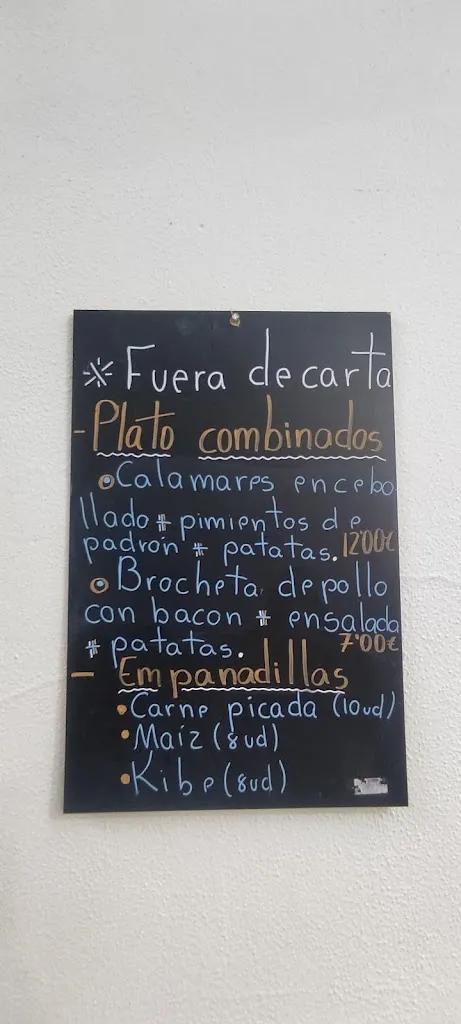 * Fuera de carta
- Plato combinados
Calamares encebo
llado + pimientos de
padrón + patatas. 12'00€
Brocheta de pollo
con bacon + ensalada
+ patatas. 7'00€
- Empanadillas
• Carne picada (10ud)
• Maíz (8ud)
• Kibe (8ud)